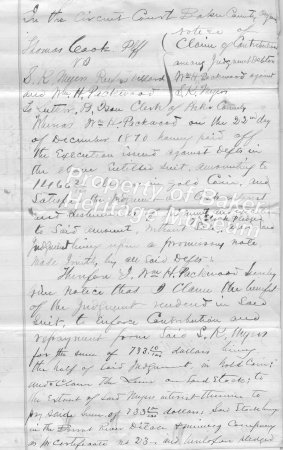 In the Circuit Court Baker County
Notice of
Thomas Cook Plff
Claim of Contribution
vs
among Judgment Debtors
S. R. Myers
Wm H. Packwood against
and Wm H. Packwood
S. R. Myers
Clerk of Baker County
Whereas Wm H. Packwood on the 22nd day
of December 1870 having paid off
the Execution issued against Defts in
the above Entitled Suit, amounting to
gold Coin, and
Satisfied the Judgment
to Said amount,
Judgment being upon a promissory note
made jointly by said Defts
Therefore I Wm H. Packwood hereby
give notice that I Claim the benefit
of the Judgment rendered in Said
Suit, to Enforce Contribution and
repayment from Said S. R. Myers
for the sum of 733 dollars being
the half of Said Judgment, in Gold Coin
and Claim the Lien on Said Stock to
the Extent of Said Myers interest therein to
pay Said sum of 733 dollars, Said Stock being
in the Burnt River Ditch & mining Company
as pr Certificate no 23 and
Property of Baker
Heritage Museum